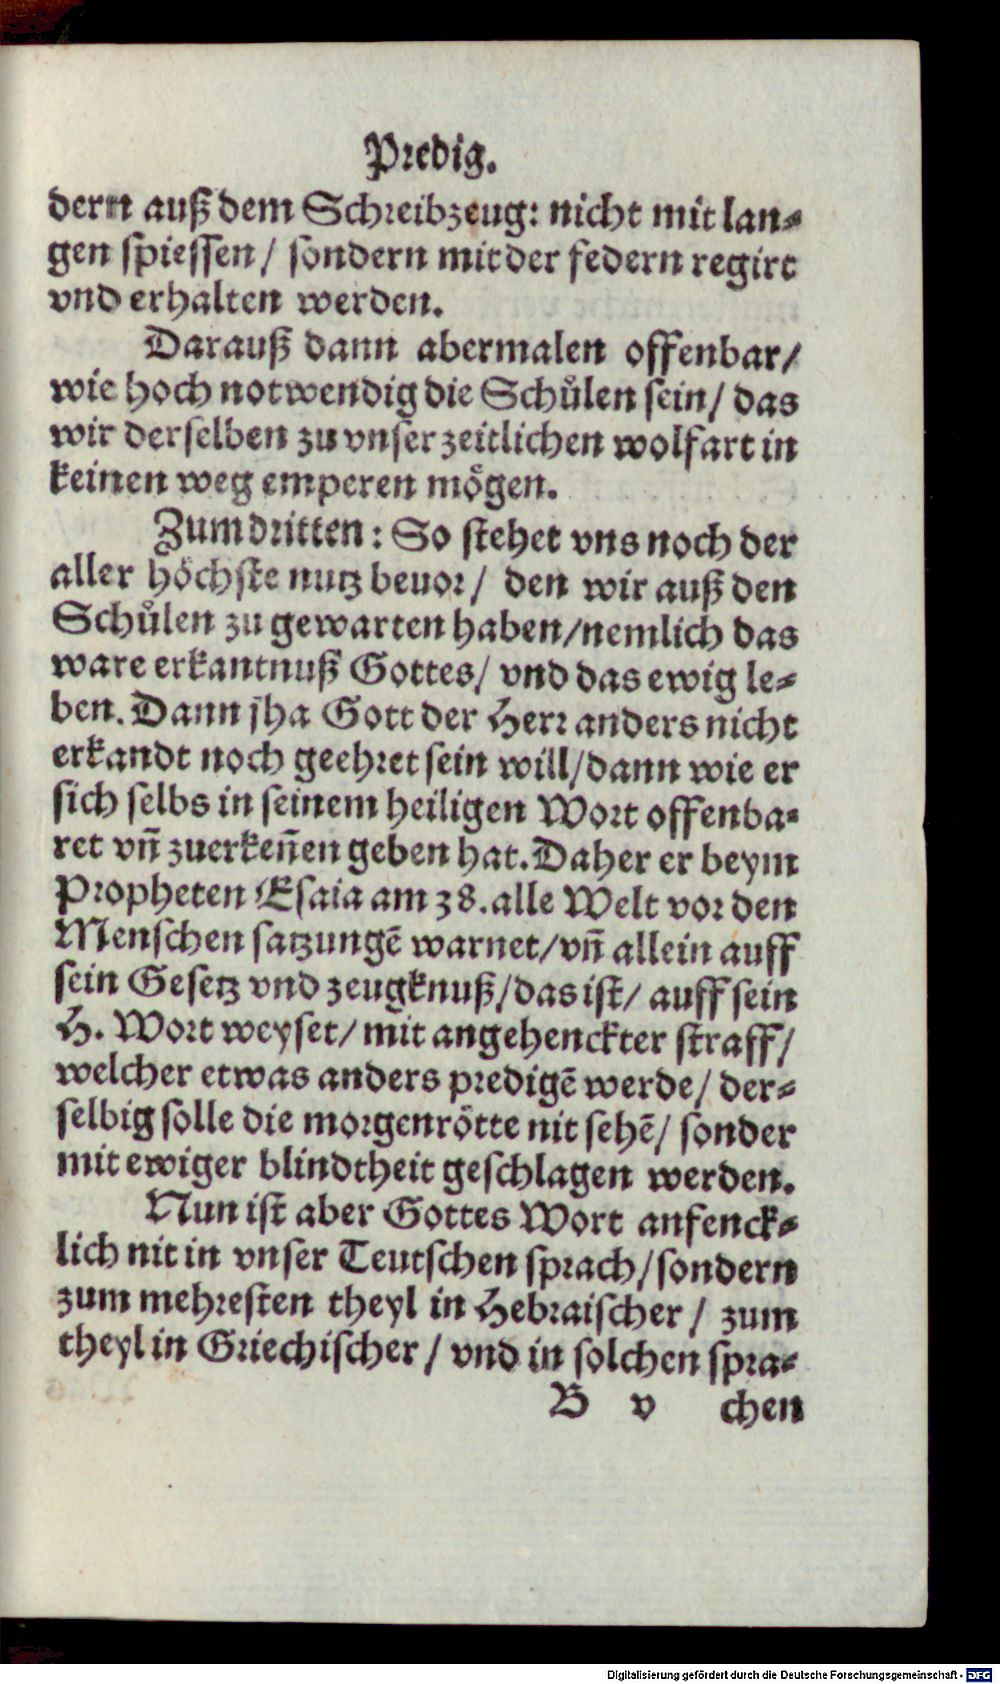 Predig.
dern auß dem Schreibzeug: nicht mit lan-
gen spiessen/ sondern mit der federn regirt
vnd erhalten werden.
Darauß dann abermalen offenbar/
wie hoch notwendig die Schůlen sein/ das
wir derselben zu vnser zeitlichen wolfart in
keinen weg emperen mögen.
Zum dritten: So stehet vns noch der
aller höchste nutz beuor/ den wir auß den
Schůlen zu gewarten haben/nemlich das
ware erkantnuß Gottes/ vnd das ewig le-
ben. Dann jha Gott der Herr anders nicht
erkandt noch geehret sein will/dann wie er
sich selbs in seinem heiligen Wort offenba-
ret vn̄ zuerken̄en geben hat. Daher er beym
Propheten Esaia am 38. alle Welt vor den
Menschen satzungē warnet/vn̄ allein auff
sein Gesetz vnd zeugknuß/das ist/ auff sein
H. Wort weyset/ mit angehenckter straff/
welcher etwas anders predigē werde/ der-
selbig solle die morgenrötte nit sehē/ sonder
mit ewiger blindtheit geschlagen werden.
Nun ist aber Gottes Wort anfenck-
lich nit in vnser Teutschen sprach/sondern
zum mehresten theyl in Hebraischer/ zum
theyl in Griechischer/ vnd in solchen spra-
B v chen
Digitalisierung gefördert durch die Deutsche Forschungsgemeinschaft - DFG